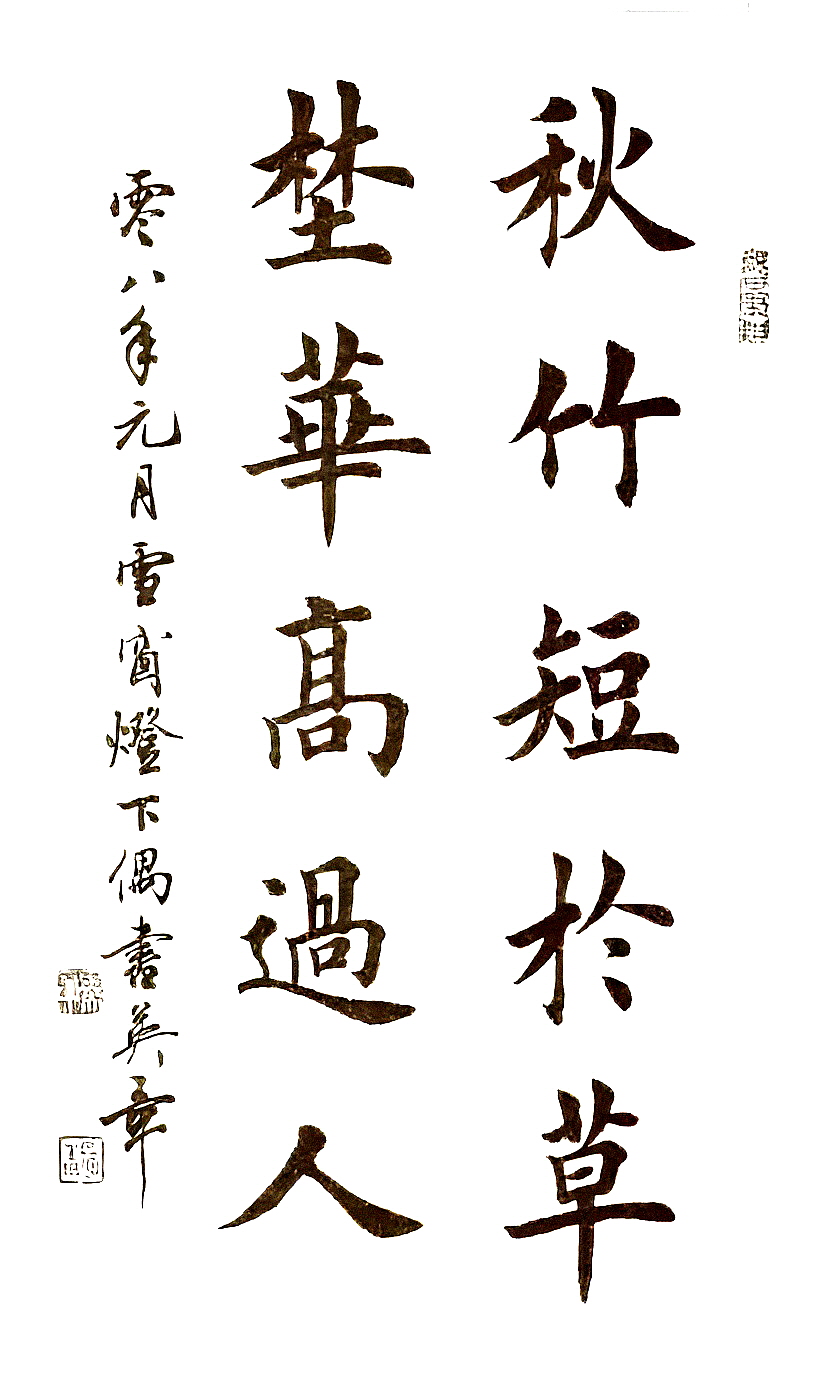 秋竹短於草
埜華髙過人
零八年元月雪窗燈下偶書英章